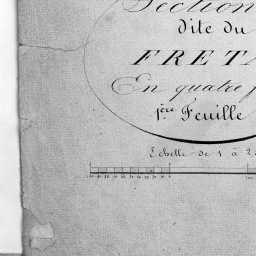 Section
dite du
FRET
En quatre
1.ère Feuille
Echelle de 1 à 2